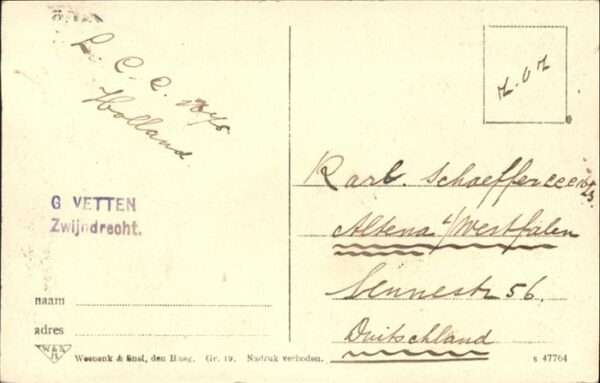 L. C. C. 1645
Holland
G VETTEN
Zwijndrecht.
naam
adres
W&S
H
Weenenk & Snel, den Haag. Gr. 19. Nadruk verboden.
Z.O.Z
Karl. Schaeffer
Altena i/Westfalen
Lennestr 56.
Duitschland
s 47764